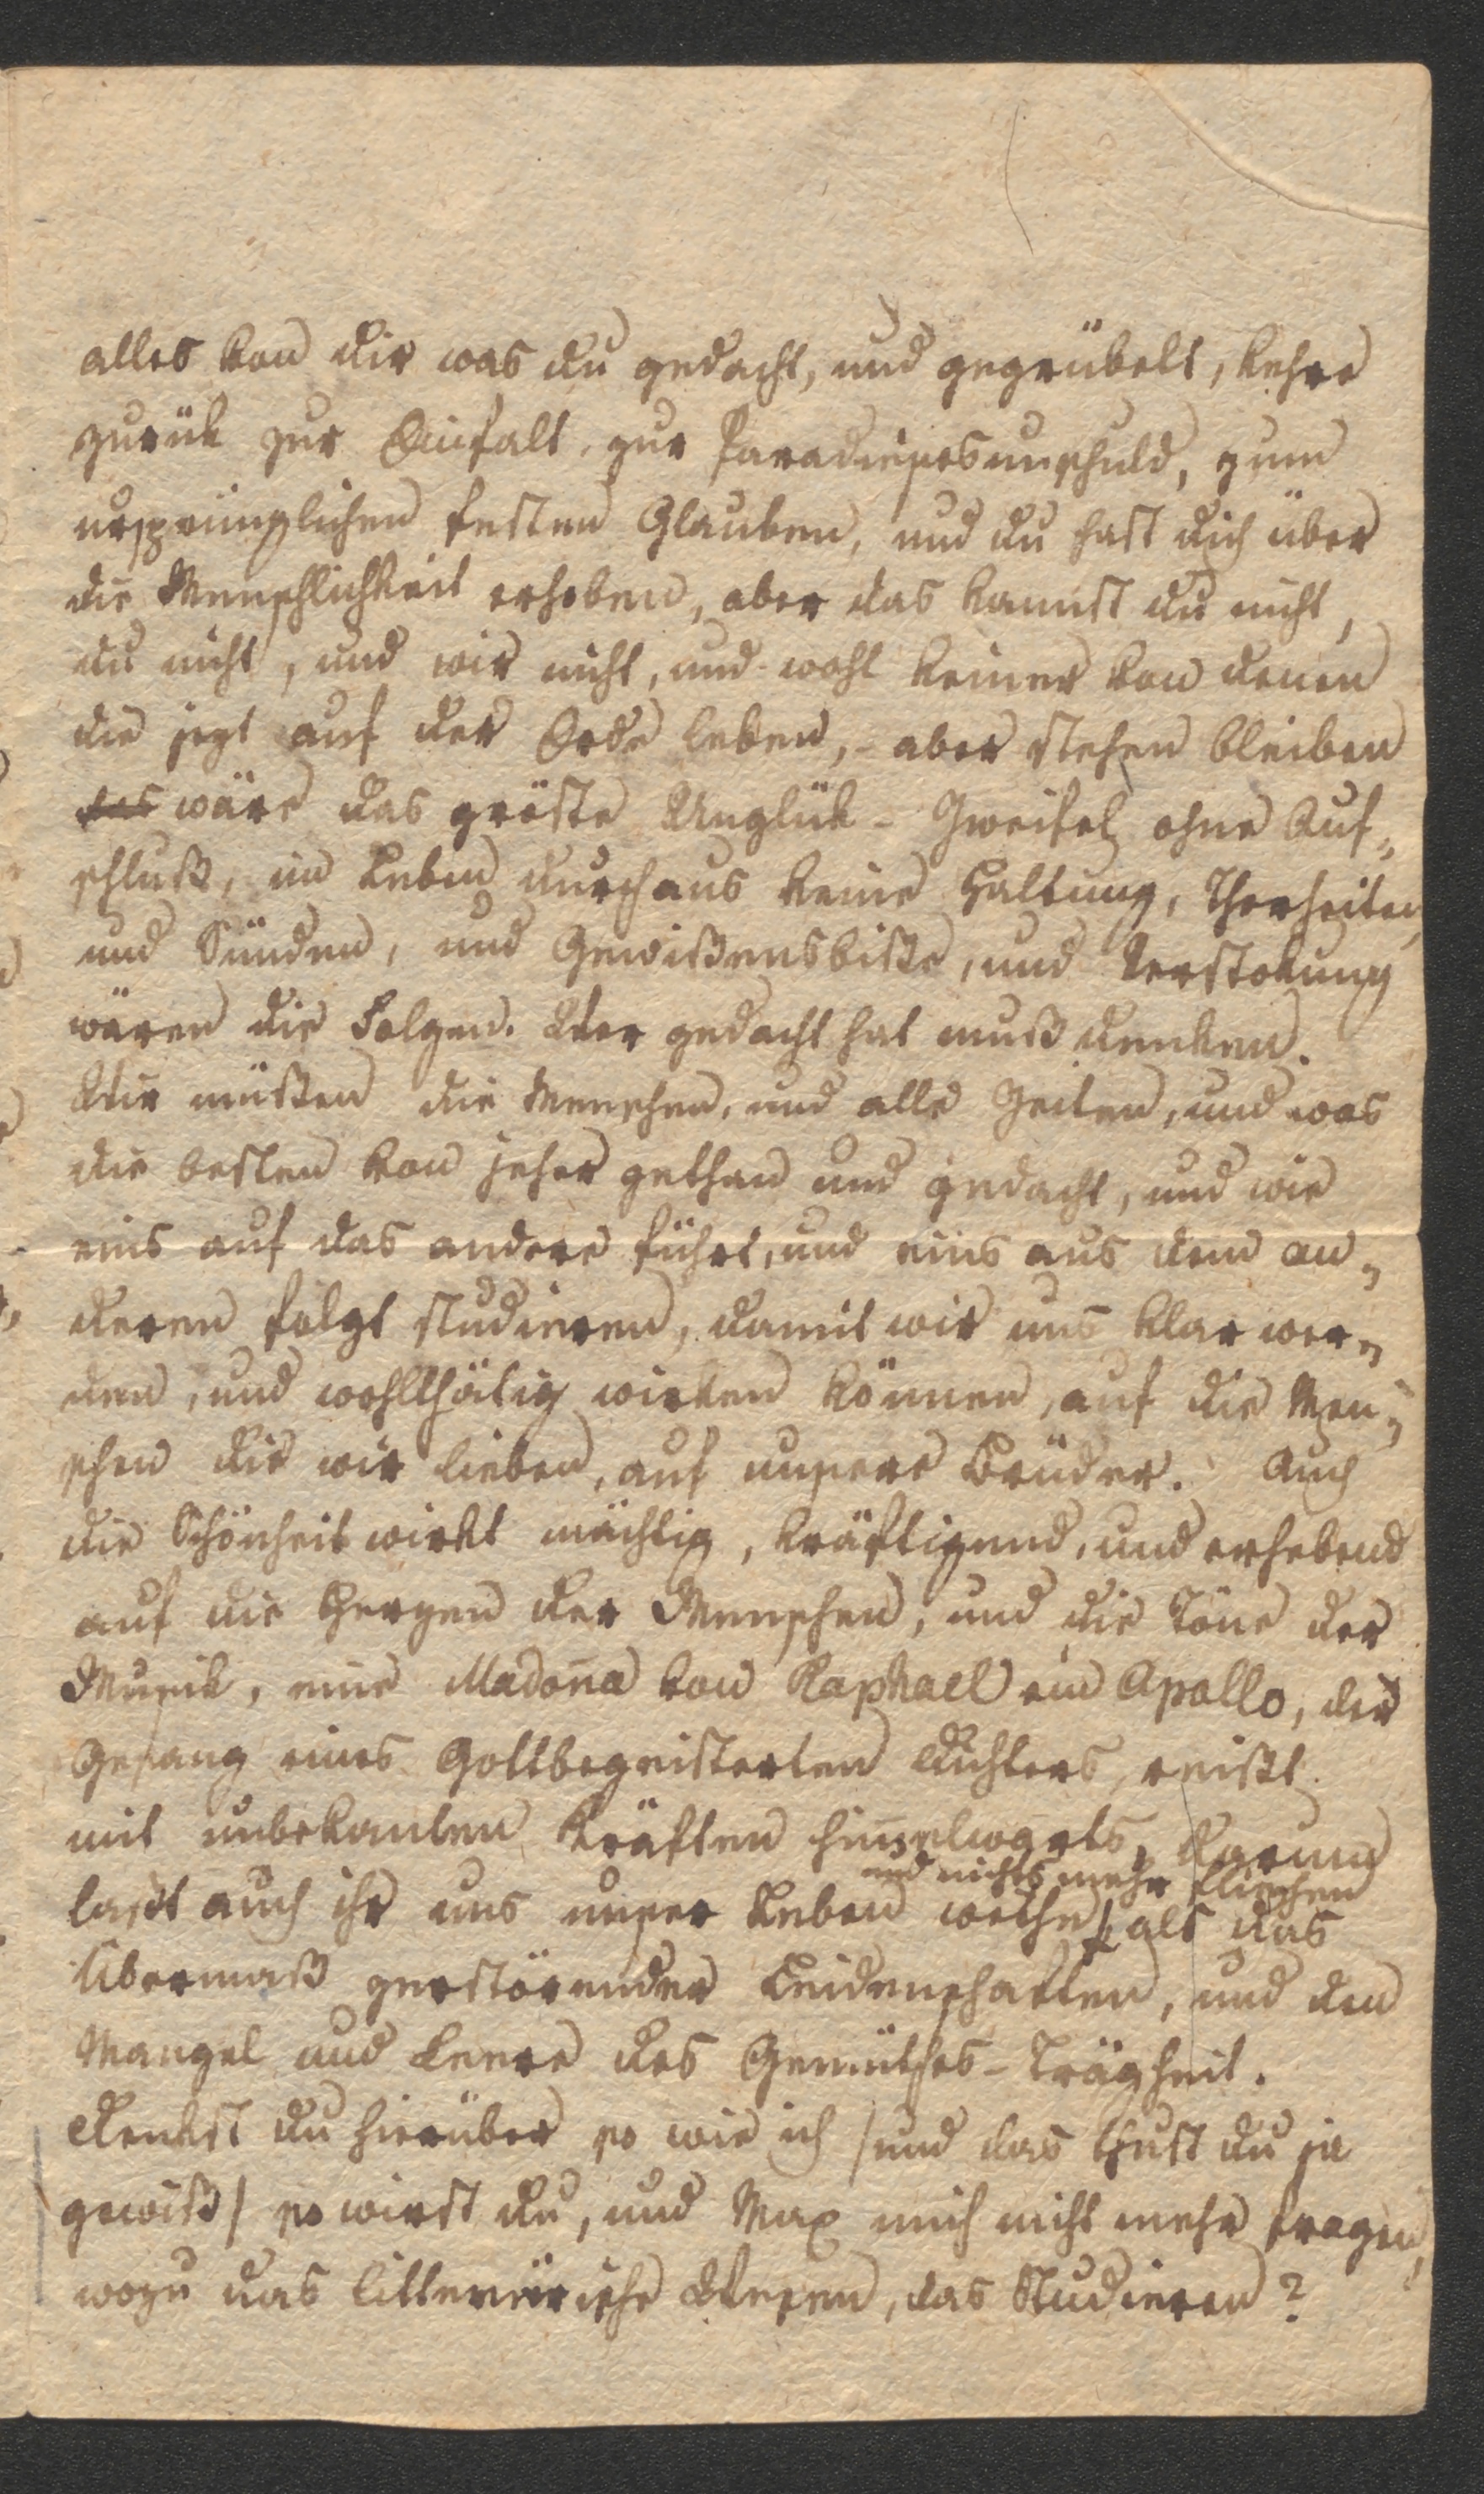 alles von dir was du gedacht, und gegrübelt, kehre
zurük zur Einfalt, zur Paradiesesunschuld, zum
ursprünglichen festen Glauben, und du hast dich über
die Menschlichkeit erhoben, aber das kannst du nicht,
du nicht, und wir nicht, und wohl keiner von denen
die jezt auf der Erde leben, - aber stehen bleiben
das wäre das gröste Unglük - Zweifel ohne Auf„
schluß, im Leben durchaus keine Haltung, Thorheiten,
und Sünden, und Gewißensbiße, und Verstokung
wären die Folgen. Wer gedacht hat muß denken.
Wir müßen die Menschen, und alle Zeiten, und was
die besten von jeher gethan und gedacht, und wie
eins auf das andere führt, und eins aus dem an„
deren folgt studieren, damit wir uns klar wer„
den, und wohlthätig wirken können, auf die Men„
schen die wir lieben, auf unsere Brüder. Auch
die Schönheit wirkt mächtig, kräftigend, und erhebend
auf die Herzen der Menschen, und die Töne der
Musik, eine Madon̄a von Raphael ein Apollo, der
Gesang eines Gottbegeisterten Dichters, reißt
mit unbekanten Kräften him̄elwärts, darum
und nichts mehr fliehen
laßt auch ihr uns unser Leben weihen als das
Übermaß zerstörender Leidenschaften, und den
Mangel und Leere des Gemüthes - Trägheit.
Denkst du hierüber so wie ich /und das thust du ja
gewiß/ so wirst du, und Max mich nicht mehr fragen,
wozu das litterärische Wesen, das Studieren?